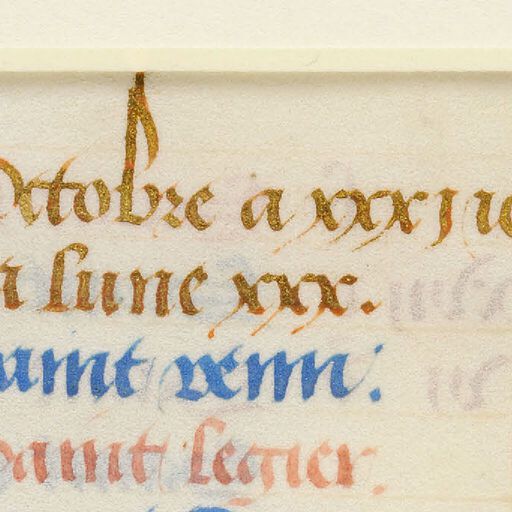 Octobre a xxxi io
la lune xxx.
saint remi.
saint legier.